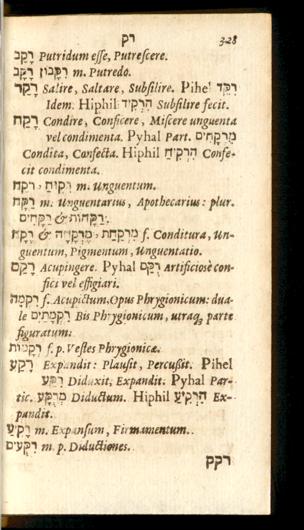 רק 328
רָקַב Putridum esse, Putrescere.
רִקָּבוֹן רָקָב m. Putredo.
רָקַד Salire, Saltare, Subsilire. Pihel רִקֵּד
Idem. Hiphil הִרְקִיד Subsilire fecit.
רָקַח Condire, Conficere, Miscere unguenta
vel condimenta. Pyhal Part. מְרֻקָּחִים
Condita, Confecta. Hiphil הִרְקִיחַ Confe-
cit condimenta.
רִקּוּחַ, רֹקַח m. Unguentum.
רַקָּח m. Unguentarius, Apothecarius: plur.
רַקָּחוֹת & רַקָּחִים.
מִרְקַחַת, מֶרְקָחָה & f. Conditura, Un-
guentum, Pigmentum, Unguentatio.
רָקַם Acupingere. Pyhal רֻקַּם Artificiosè con-
fici vel effigiari.
רִקְמָה f. Acupictum, Opus Phrygionicum: dua-
le רִקְמָתַיִם Bis Phrygionicum, utraq; parte
figuratum:
רְקָמוֹת f. p. Vestes Phrygionicæ.
רָקַע Expandit: Plausit, Percussit. Pihel
רִקַּע Diduxit, Expandit. Pyhal Par-
tic. מְרֻקָּע Diductum. Hiphil הִרְקִיעַ Ex-
pandit.
רָקִיעַ m. Expansum, Firmamentum.
רִקֻּעִים m. p. Diductiones.
רקק